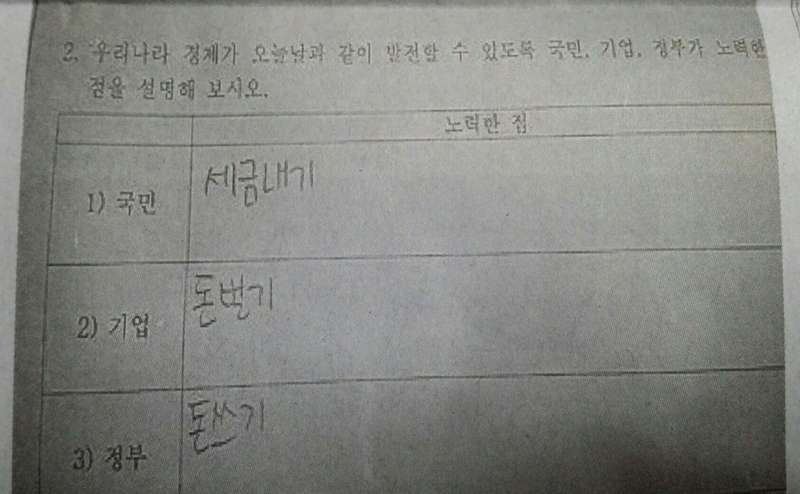 2. 우리나라 경제가 오늘날과 같이 발전할 수 있도록 국민, 기업, 정부가 노력한
점을 설명해 보시오.
노력한 점
1) 국민
세금내기
2) 기업
돈벌기
3) 정부
돈쓰기